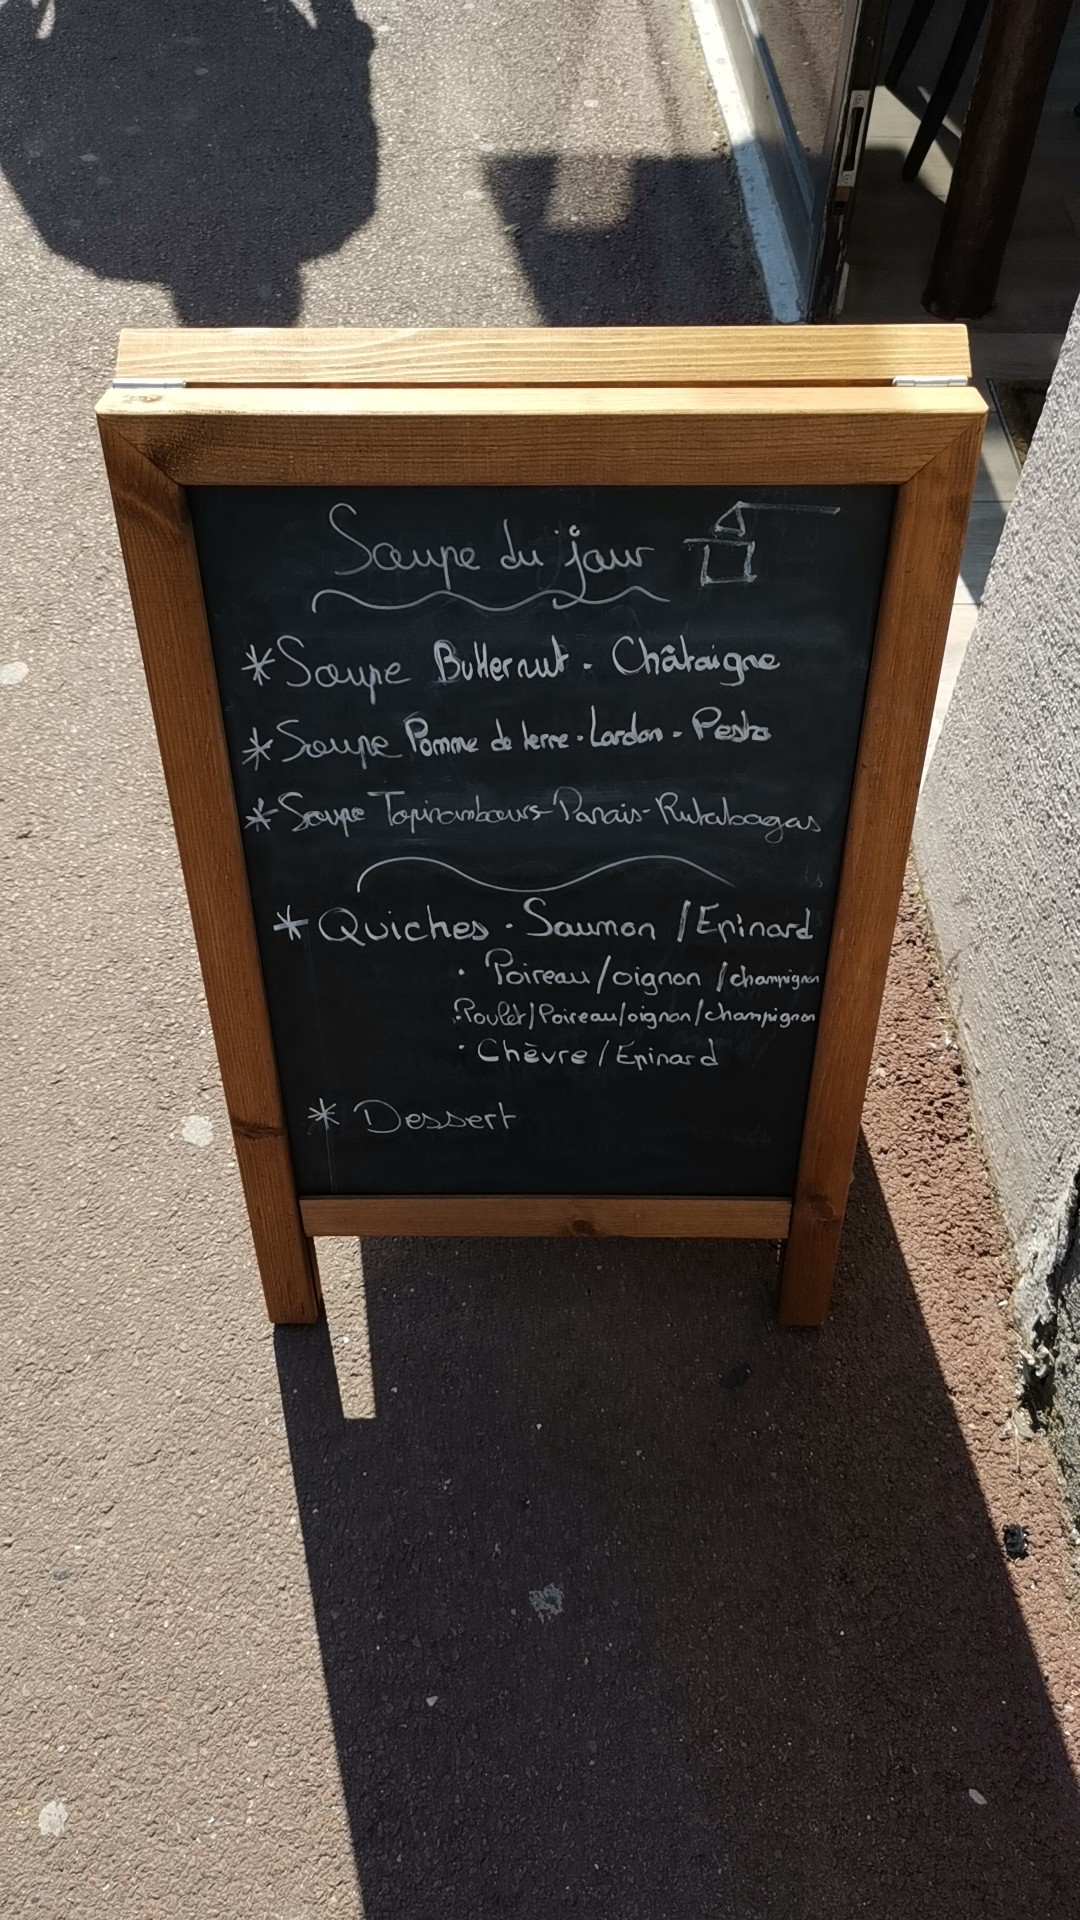 Soupe du jour
* Soupe Butternut - Châtaigne
* Soupe Pomme de terre - Lardon - Pesto
* Soupe Topinambours - Panais - Rutabagas
* Quiches · Saumon / Epinard
· Poireau / oignon / champignon
· Poulet / Poireau / oignon / champignon
· Chèvre / Epinard
* Dessert